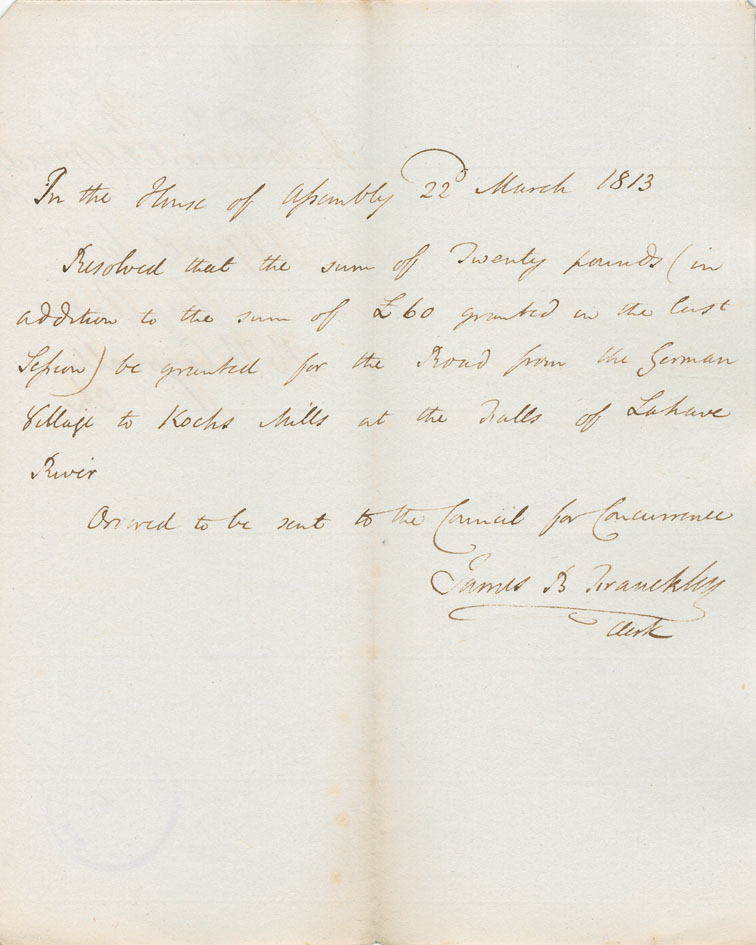 In the House of Assembly 22d March 1813
Resolved that the sum of Twenty pounds (in
addition to the sum of £60 granted in the last
Session) be granted for the Road from the German
Village to Kochs Mills at the Falls of Lahave
River
Ordered to be sent to the Council for Concurrence
James B Franckley
Clerk